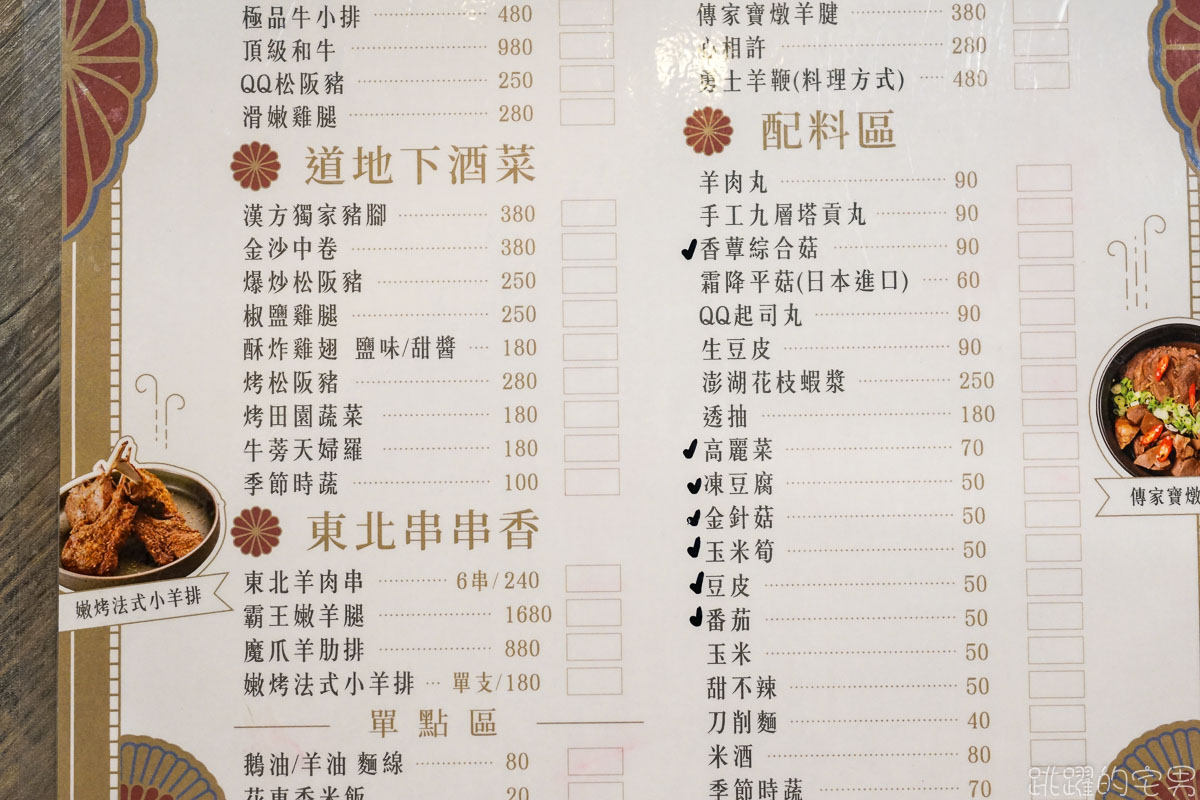 極品牛小排 480
頂級和牛 980
QQ松阪豬 250
滑嫩雞腿 280
道地下酒菜
漢方獨家豬腳 380
金沙中卷 380
爆炒松阪豬 250
椒鹽雞腿 250
酥炸雞翅 鹽味/甜醬 180
烤松阪豬 280
烤田園蔬菜 180
牛蒡天婦羅 180
季節時蔬 100
東北串串香
東北羊肉串 6串/240
霸王嫩羊腿 1680
魔爪羊肋排 880
嫩烤法式小羊排 單支/180
單點區
鵝油/羊油 麵線 80
花東香米飯 20
嫩烤法式小羊排
傳家寶燉羊腱 380
心相許 280
勇士羊鞭(料理方式) 480
配料區
羊肉丸 90
手工九層塔貢丸 90
香蕈綜合菇 90
霜降平菇(日本進口) 60
QQ起司丸 90
生豆皮 90
澎湖花枝蝦漿 250
透抽 180
高麗菜 70
凍豆腐 50
金針菇 50
玉米筍 50
豆皮 50
番茄 50
玉米 50
甜不辣 50
刀削麵 40
米酒 80
季節時蔬 70
傳家寶燉
跳躍的宅男